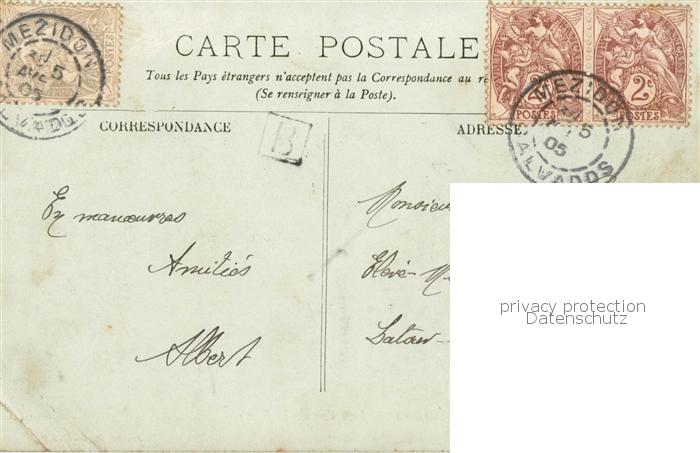 CARTE POSTALE
Tous les Pays étrangers n'acceptent pas la Correspondance au re
(Se renseigner à la Poste).
CORRESPONDANCE
ADRESSE
B
MEZIDON
5
05
POSTES
2c
POSTES
MEZIDON
5
05
CALVADOS
En manœuvres
Amitiés
Albert
Monsieur
Elève-M
privacy protection
Datenschutz